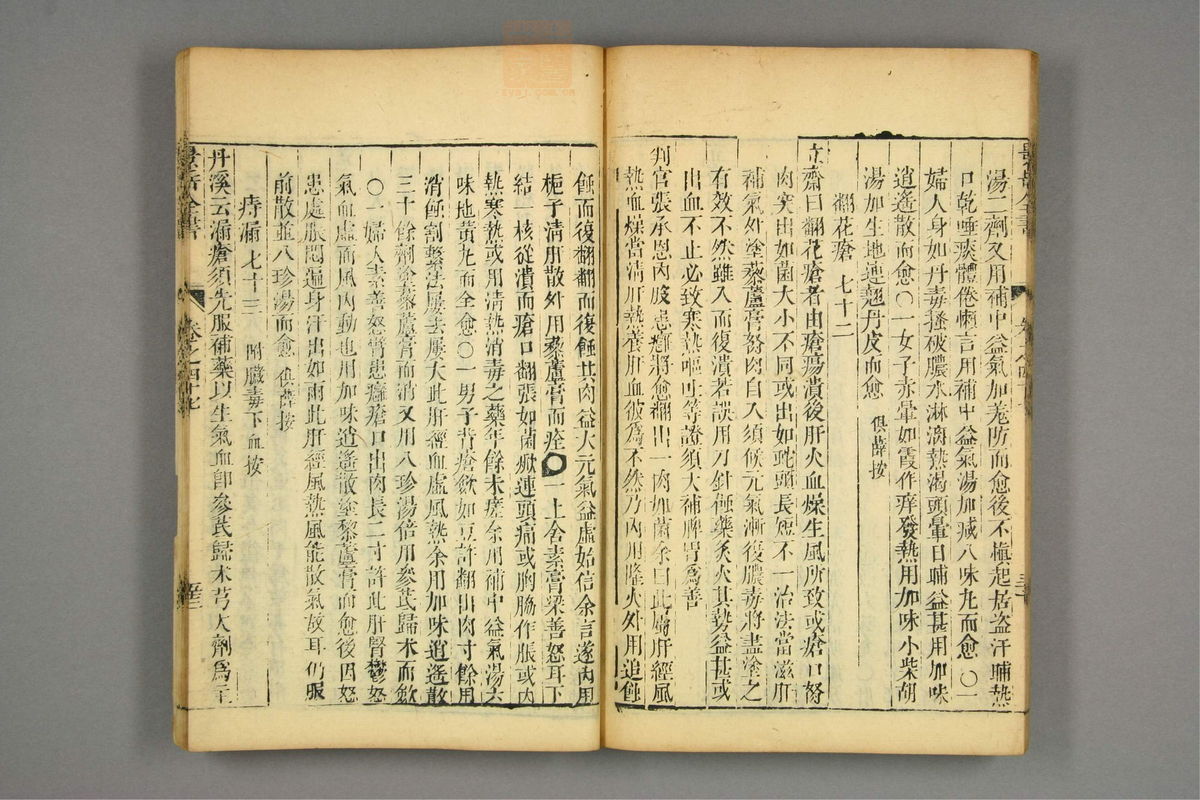 湯二劑又用補中益氣加羗防而愈後不愼起居盗汗晡熱
口乾唾痰體倦懶言用補中益氣湯加减八味丸而愈〇一
婦人身如丹毒搔破膿水淋漓熱渴頭暈日晡益甚用加味
逍遙散而愈〇一女子赤暈如霞作痒發熱用加味小柴胡
湯加生地連翹丹皮而愈 俱薛按
翻花瘡 七十二
立齋曰翻花瘡者由瘡瘍潰後肝火血燥生風所致或瘡口努
肉突出如菌大小不同或出如蛇頭長短不一治法當滋肝
補氣外塗藜蘆膏努肉自入須候元氣漸復膿毒將盡塗之
有效不然雖入而復潰若誤用刀針蝕藥灸火其勢益甚或
出血不止必致寒熱嘔吐等證須大補脾胃爲善
判官張承恩內股患癰將愈翻出一肉如菌余曰此屬肝經風
熱血燥當清肝熱養肝血彼爲不然乃內用降火外用追蝕
蝕而復翻翻而復蝕其肉益大元氣益虛始信余言遂內用
梔子清肝散外用藜蘆膏而痊〇一上舍素膏梁善怒耳下
結一核從潰而瘡口翻張如菌焮連頭痛或胸脇作脹或內
熱寒熱或用清熱消毒之藥年餘未瘥余用補中益氣湯六
味地黃丸而全愈〇一男子背瘡歛如豆許翻出肉寸餘用
消蝕割繫法屢去屢大此肝經血虛風熱余用加味逍遙散
三十餘劑塗藜蘆膏而消又用八珍湯倍用參芪歸术而歛
〇一婦人素善怒臂患癰瘡口出肉長二寸許此肝腎鬱怒
氣血虛而風內動也用加味逍遙散塗藜蘆膏而愈後因怒
患處脹悶遍身汗出如雨此肝經風熱風能散氣故耳仍服
前散並八珍湯而愈 俱薛按
痔漏 七十三 附臟毒下血按
丹溪云漏瘡須先服補藥以生氣血卽參芪歸术芎大劑爲主
景岳全書
卷之四十七